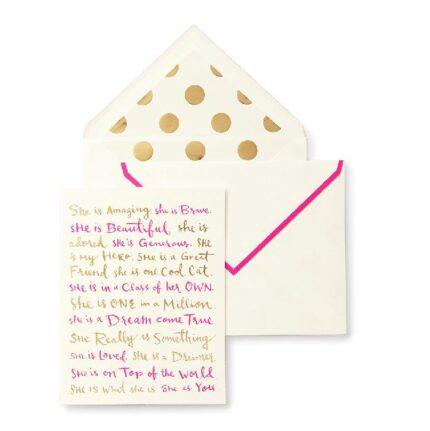 She is Amazing. she is Brave.
she is Beautiful she is
adored. she is Generous. She
is my Hero. She is a Great
Friend she is one Cool Cat.
She is in a Class of her OWN.
She is ONE in a Million.
she is a Dream come True
She Really is Something
She is Loved. She is a Dreamer.
She is on Top of the World
She is what she is She is You